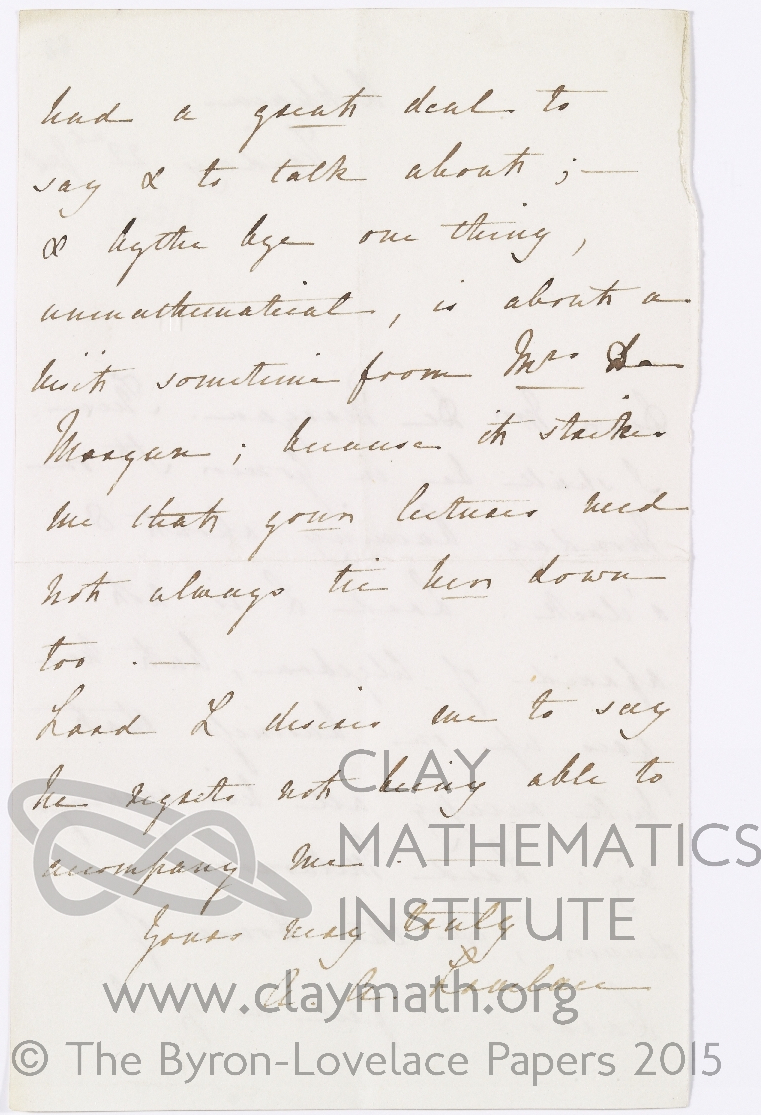 had a great deal to
say & to talk about ; —
& bythe bye one thing,
unmathematical, is about a
visit sometime from Mrs De
Morgan; because it strikes
me that your lectures need
not always tie her down
too . —
Lord L desires me to say
he regrets not being able to
accompany me . —
Yours very truly
A. A. Lovelace
CLAY
MATHEMATICS
INSTITUTE
www.claymath.org
© The Byron-Lovelace Papers 2015